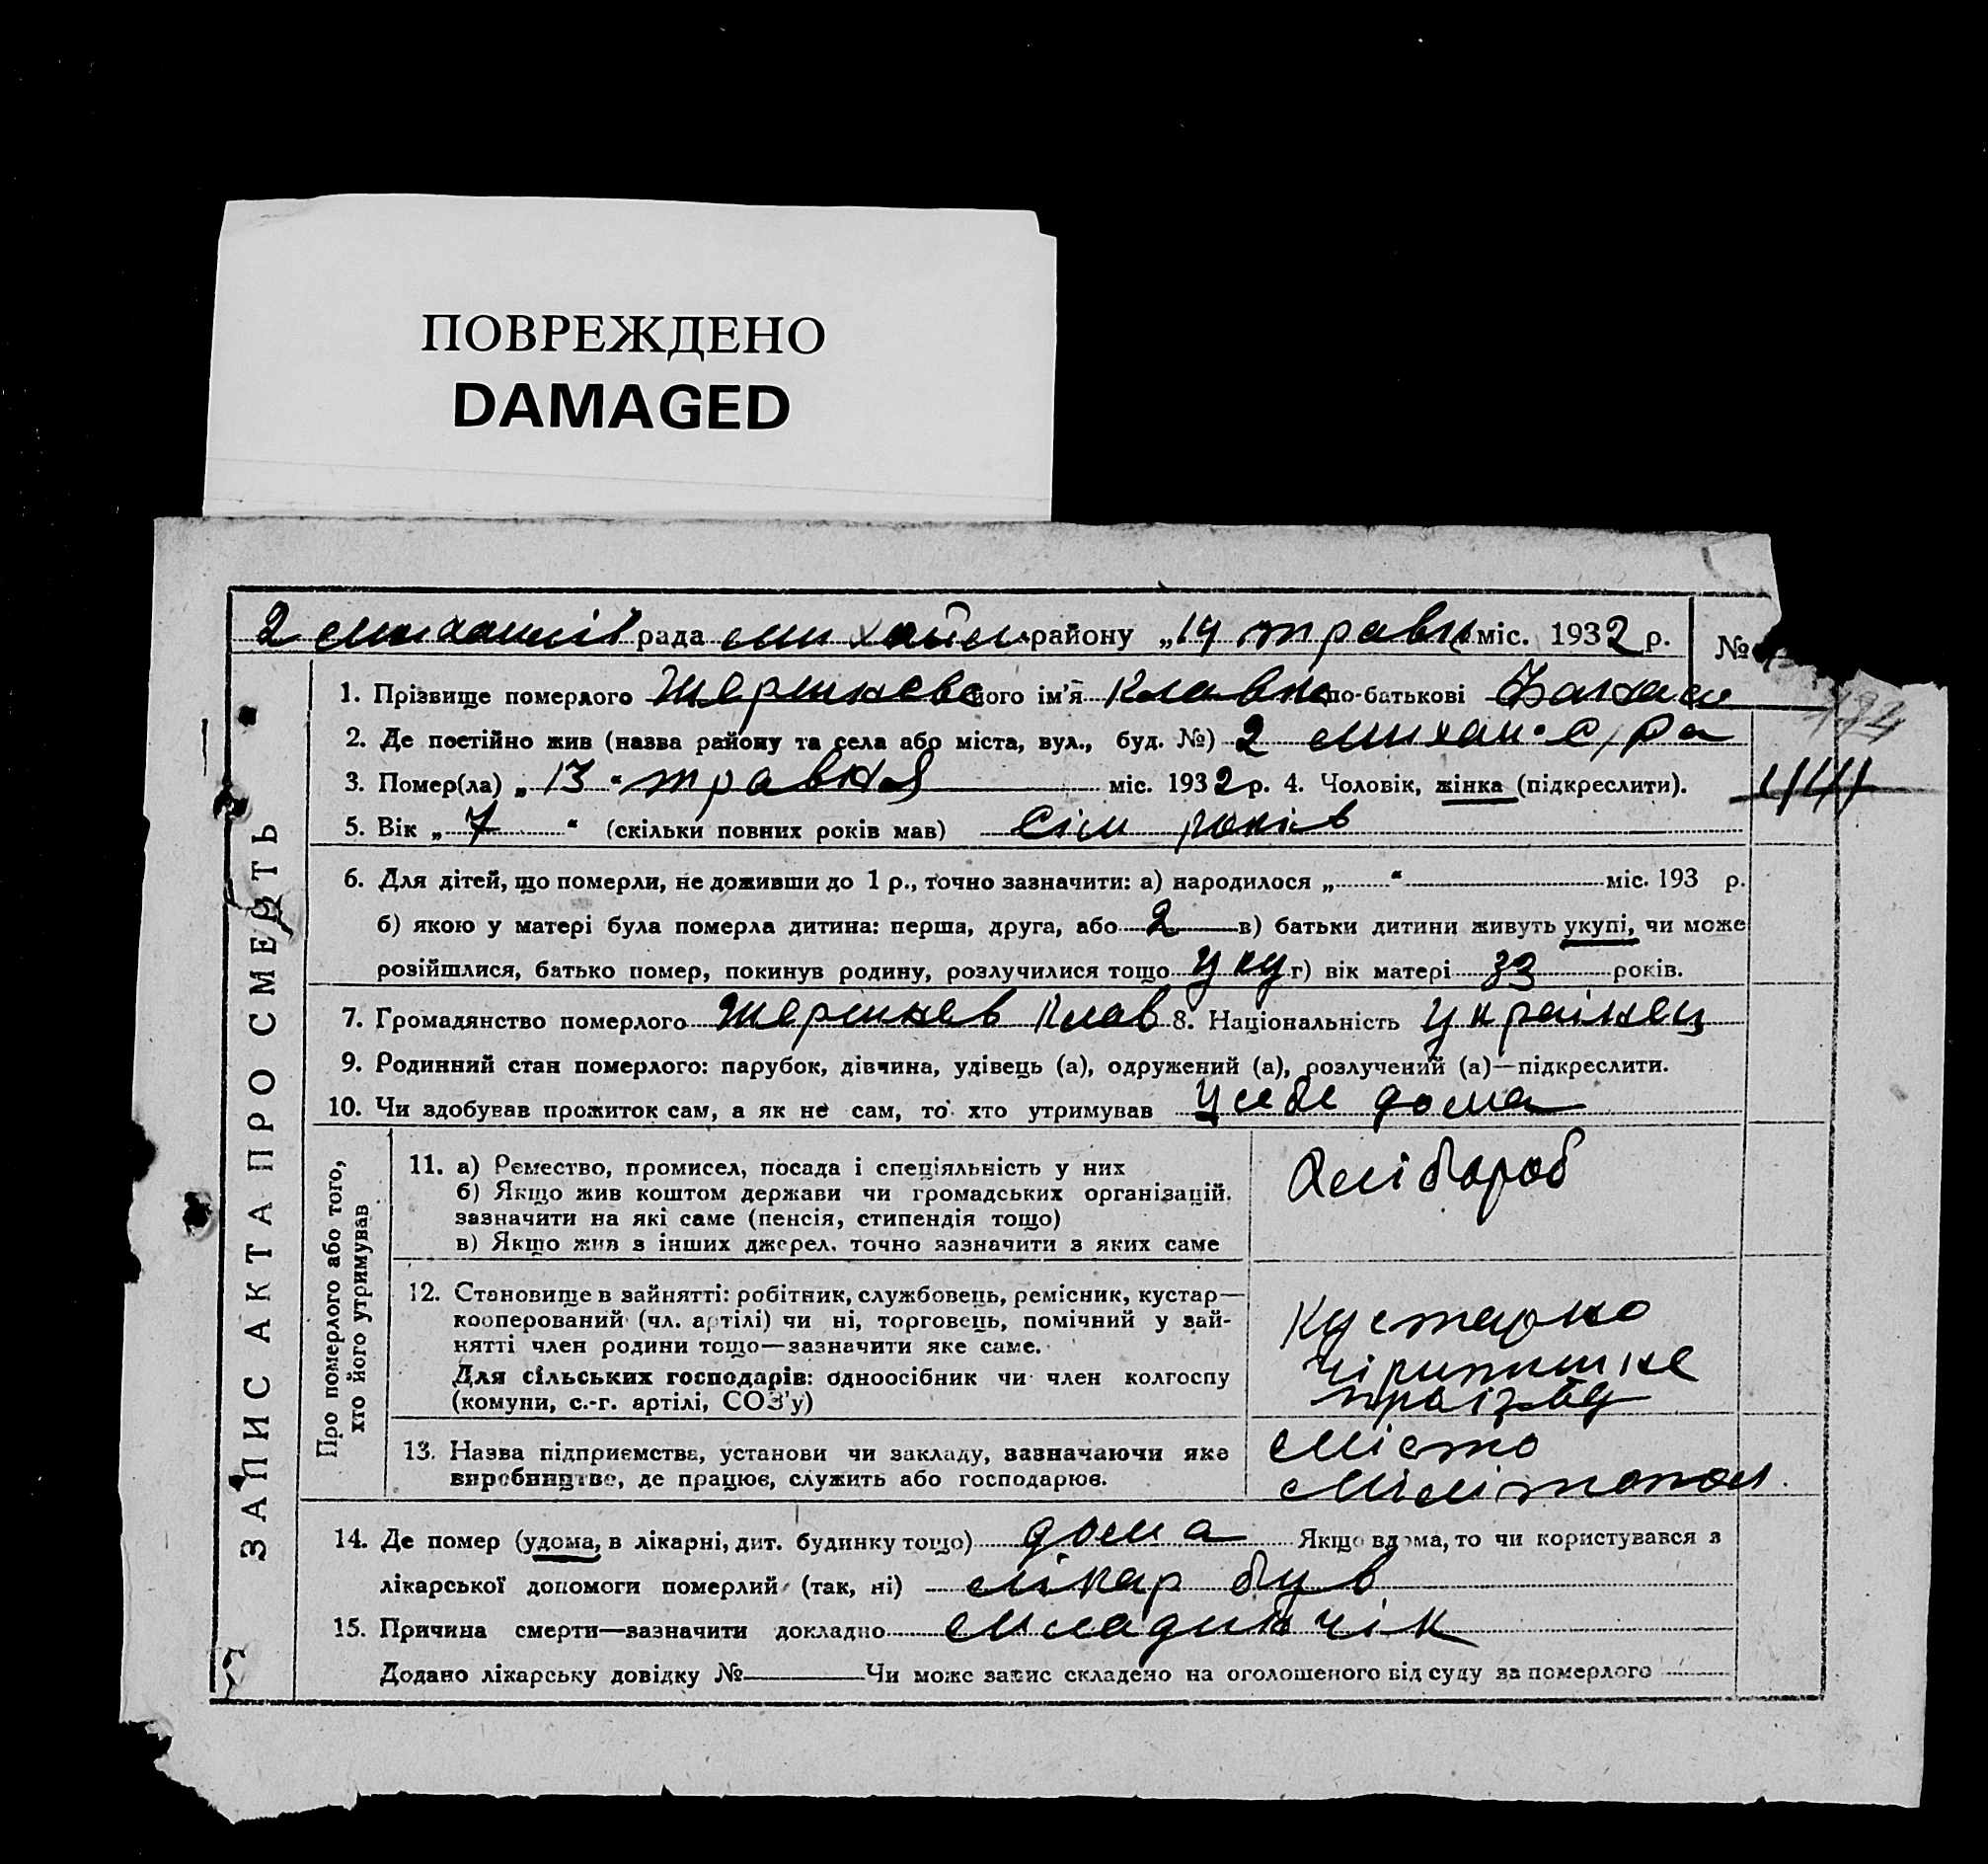 ПОВРЕЖДЕНО
DAMAGED
2 михайлів рада михайлів району „14 травня міс. 1932 р. №
1. Прізвище померлого його ім'я Клавв по-батькові
2. Де постійно жив (назва району та села або міста, вул., буд. №) 2 михай. с/ра
3. Помер(ла) „ 13 “ травня міс. 1932 р. 4. Чоловік, жінка (підкреслити).
5. Вік „ 7 “ (скільки повних років мав) сім років
6. Для дітей, що померли, не доживши до 1 р., точно зазначити: а) народилося „ “ міс. 193 р.
б) якою у матері була померла дитина: перша, друга, або 2 в) батьки дитини живуть укупі, чи може
розійшлися, батько помер, покинув родину, розлучилися тощо уку г) вік матері 33 років.
7. Громадянство померлого Клав 8. Національність українец
9. Родинний стан померлого: парубок, дівчина, удівець (а), одружений (а), розлучений (а)—підкреслити.
10. Чи здобував прожиток сам, а як не сам, то хто утримував у себе дома
ЗАПИС АКТА ПРО СМЕРТЬ
Про померлого або того,
хто його утримував
11. а) Ремество, промисел, посада і спеціяльність у них
б) Якщо жив коштом держави чи громадських організацій,
зазначити на які саме (пенсія, стипендія тощо)
в) Якщо жив з інших джерел, точно зазначити з яких саме
Хлібороб
12. Становище в зайнятті: робітник, службовець, ремісник, кустар—
кооперований (чл. артілі) чи ні, торговець, помічний у зай-
нятті член родини тощо—зазначити яке саме.
Для сільських господарів: одноосібник чи член колгоспу
(комуни, с.-г. артілі, СОЗ'у)
кустарно
13. Назва підприємства, установи чи закладу, зазначаючи яке
виробництво, де працює, служить або господарює.
місто
Мілітопол.
14. Де помер (удома, в лікарні, дит. будинку тощо) дома Якщо вдома, то чи користувався з
лікарської допомоги померлий (так, ні) лікар був
15. Причина смерти—зазначити докладно младинчік
Додано лікарську довідку № Чи може запис складено на оголошеного від суду за померлого